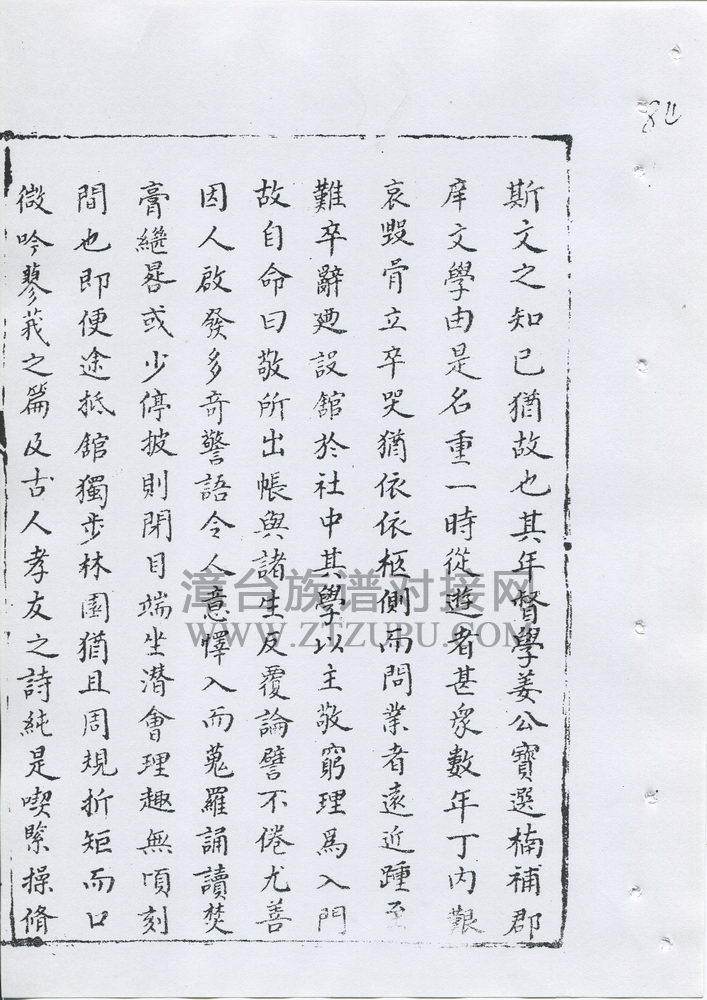 84
斯文之知已猶故也其年督學姜公寶選楠補郡
庠文學由是名重一時從遊者甚衆數年丁内艱
哀毀骨立卒哭猶依依柩側而問業者遠近踵至
難卒辭廼設舘於社中其學以主敬窮理爲入門
故自命曰敬所出帳與諸生反覆論譬不倦尤善
因人啟發多奇警語令人意懌入而蒐羅誦讀焚
膏繼晷或少停披則閉目端坐潛會理趣無頃刻
間也即便途抵舘獨步林園猶且周規折矩而口
微吟蓼莪之篇及古人孝友之詩純是喫緊操脩
漳台族谱对接网
WWW.ZTZUPU.COM